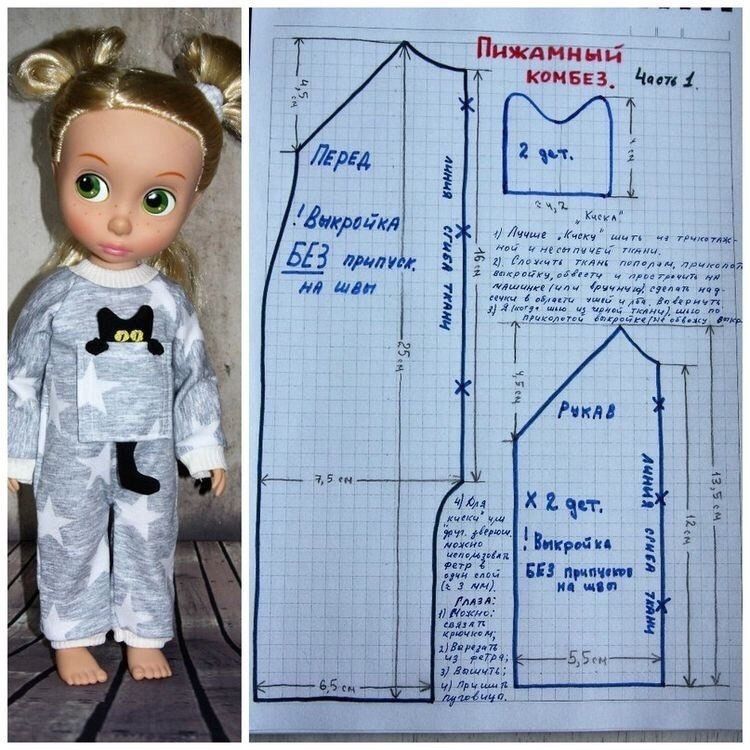 Пижамный
комбез. Часть 1.
4,5 см
Перед
! Выкройка
БЕЗ припуск.
на швы
линия сгиба ткани
16 см
25 см
7,5 см
6,5 см
2 дет.
≈ 4,2
"Киска"
1) Лучше "Киску" шить из трикотаж-
ной и несыпучей ткани.
2) Сложить ткань пополам, приколоть
выкройку, обвести и прострочить на
машинке (или вручную), сделать над-
сечки в области ушей и лба. Вывернуть
3) Я (когда шью из чёрной ткани), шью по
приколотой выкройке (не обвожу выкр.
4) Для
"киски" или
друг. зверюш.
можно
использовать
фетр в
один слой
(≈ 3 мм).
Глаза:
1) Можно:
связать
крючком;
2) Вырезать
из фетра;
3) Вышить;
4) Пришить
пуговицы.
4,5 см
Рукав
х 2 дет.
! Выкройка
БЕЗ припусков
на швы
линия сгиба ткани
12 см
13,5 см
5,5 см